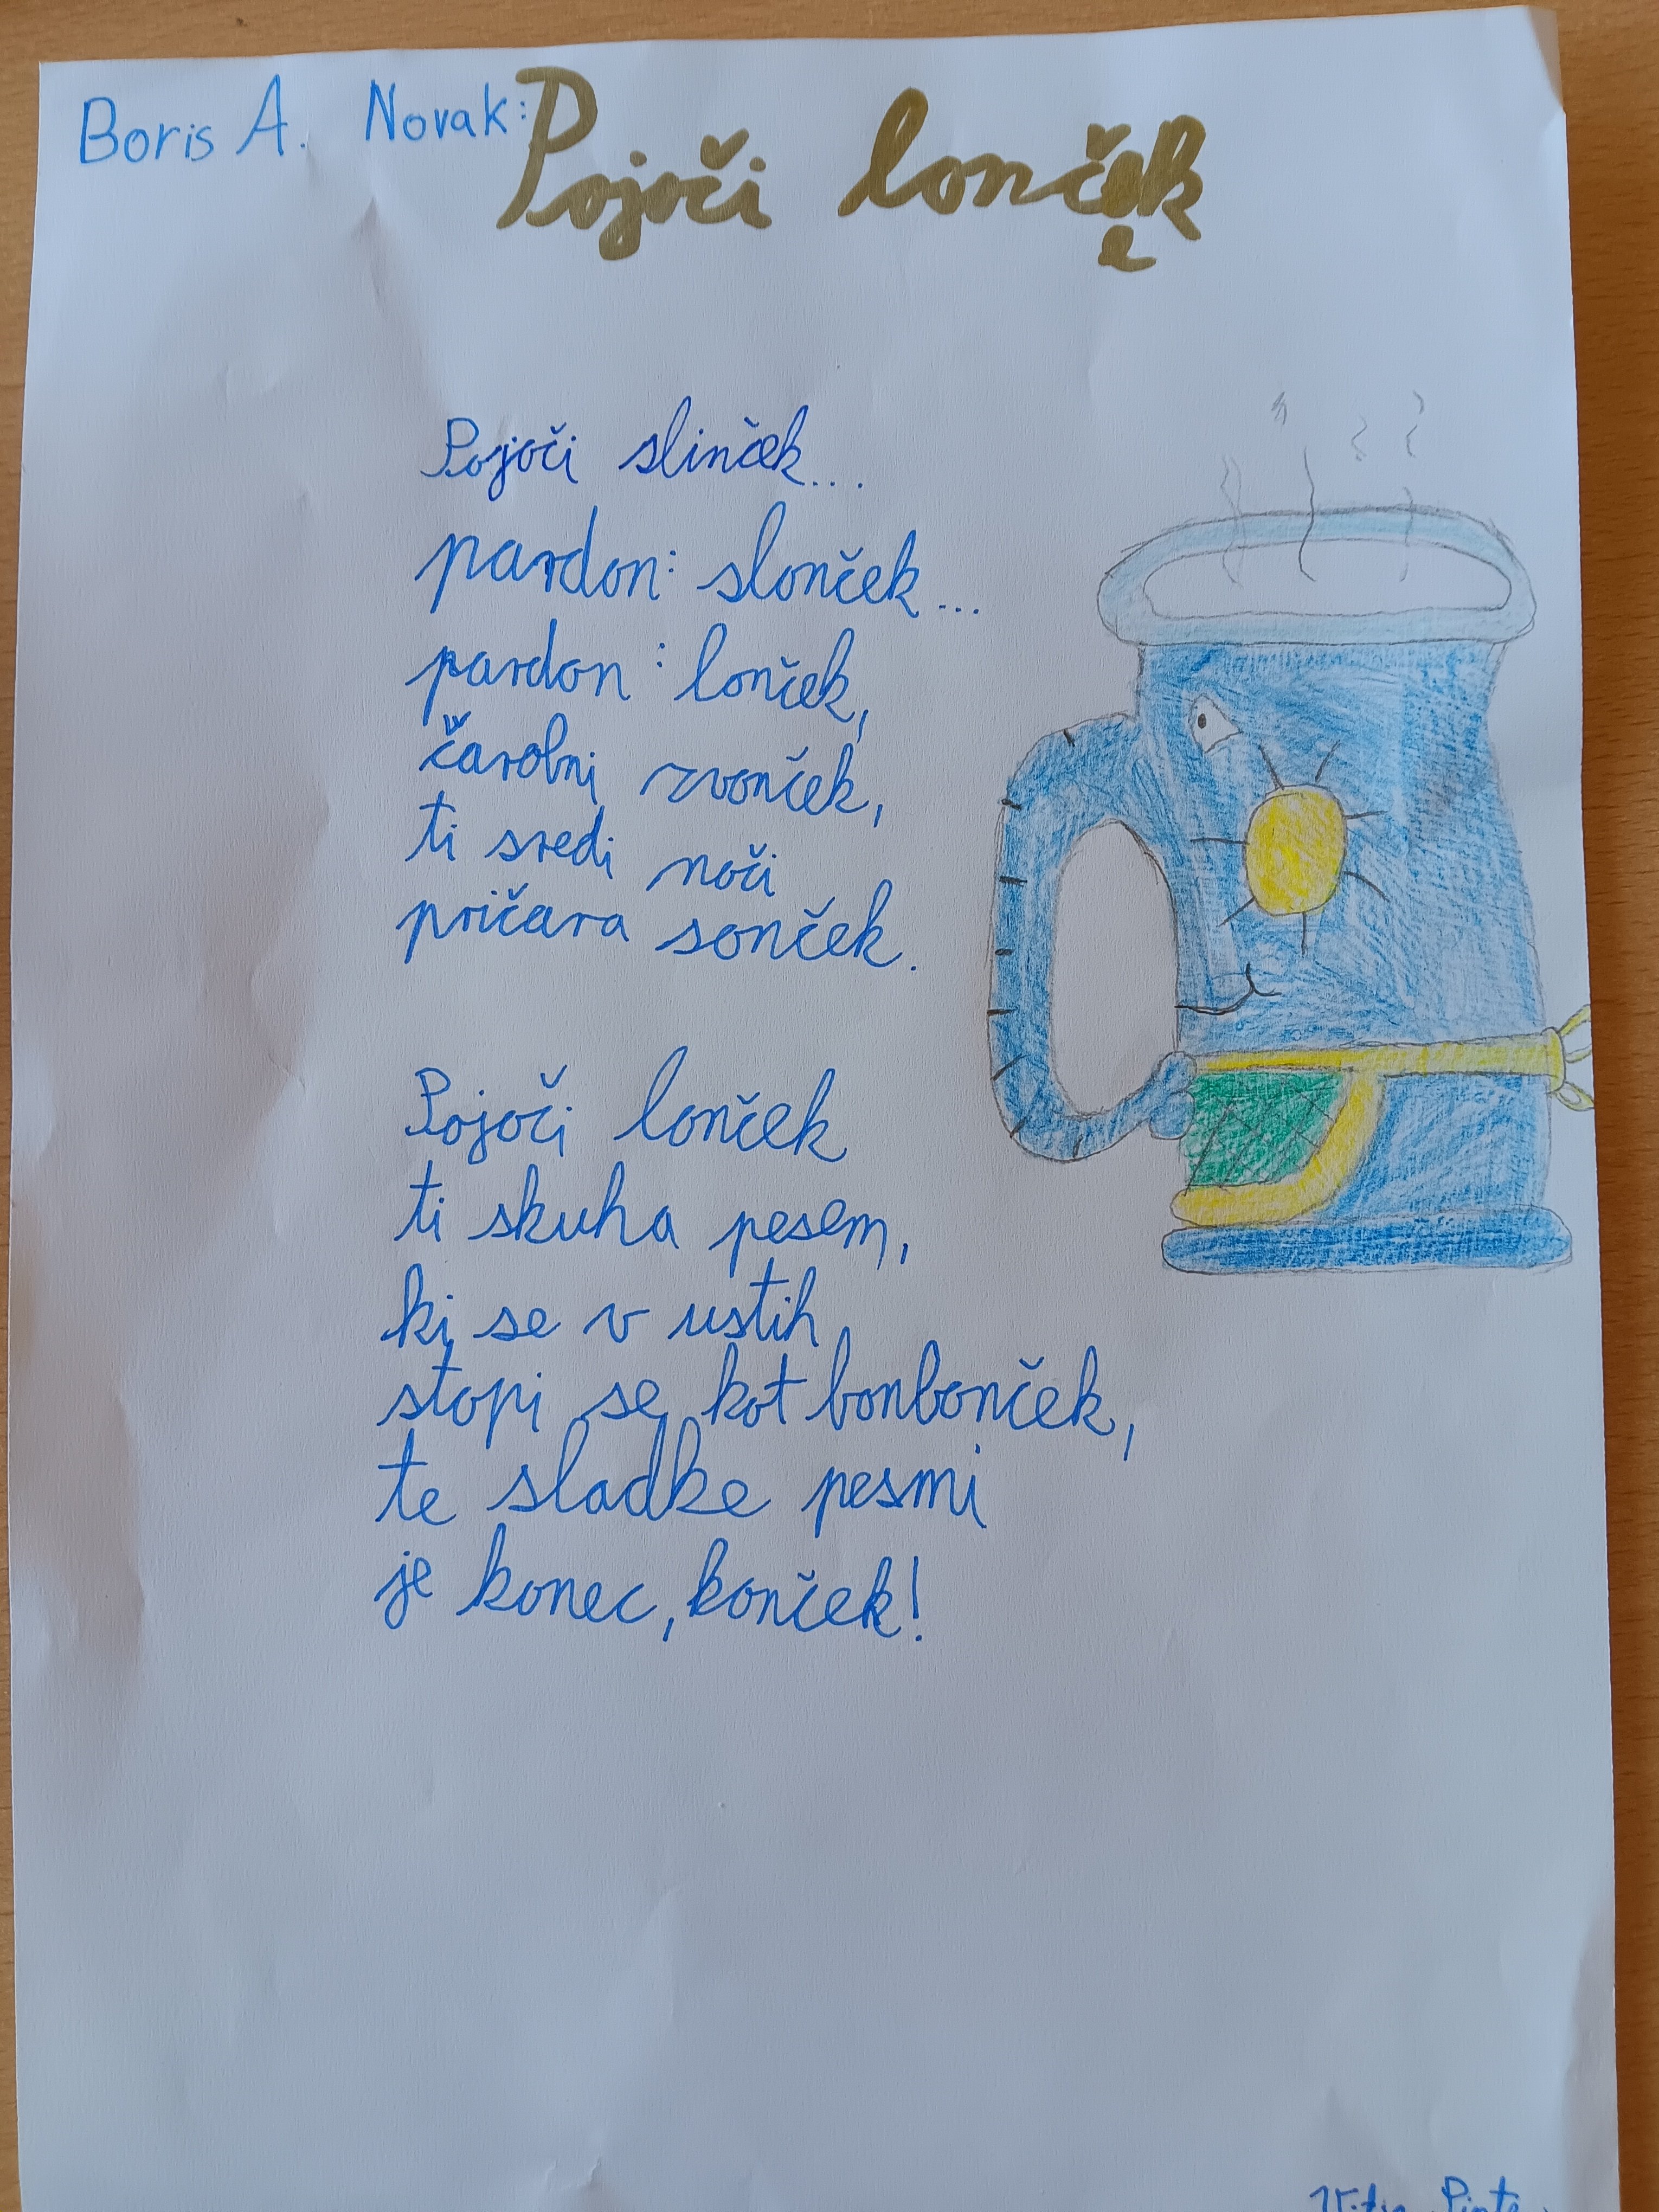 Boris A. Novak: Pojoči lonček
e
Pojoči slinček...
pardon: slonček...
pardon: lonček,
čarobni zvonček,
ti sredi noči
pričara sonček.
Pojoči lonček
ti skuha pesem,
ki se v ustih
stopi se kot bonbonček,
te sladke pesmi
je konec, konček!